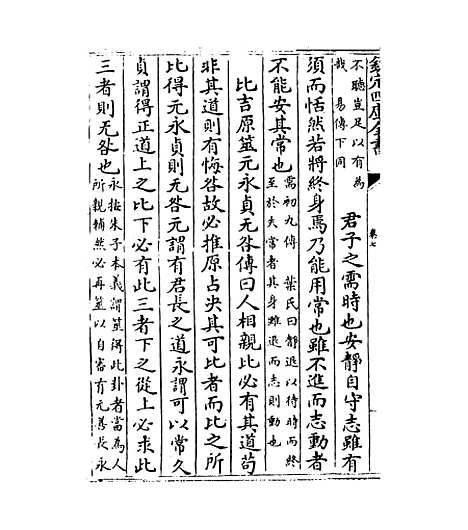 欽定四庫全書
卷七
不聽豈足以有為
哉　易傳下同
君子之需時也安靜自守志雖有
須而恬然若將終身焉乃能用常也雖不進而志動者
不能安其常也
需初九傳　葉氏曰靜退以待時而終
至於失常者其身雖退而志則動也
比吉原筮元永貞无咎傳曰人相親比必有其道苟
非其道則有悔咎故必推原占決其可比者而比之所
比得元永貞則无咎元謂有君長之道永謂可以常久
貞謂得正道上之比下必有此三者下之從上必求此
三者則无咎也
永按朱子本義謂筮得此卦者當為人
所親輔然必再筮以自審有元善長永